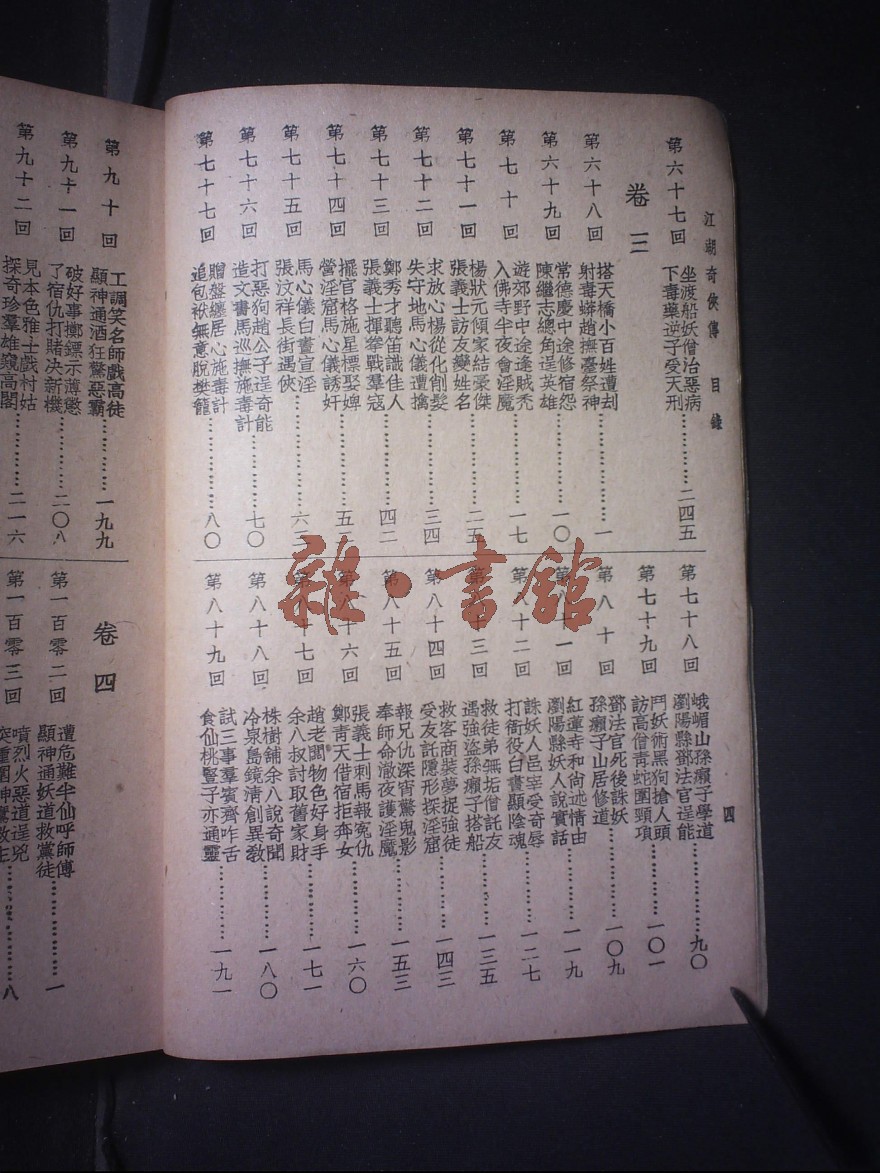 江湖奇俠傳　目錄
四
第六十七回　坐渡船妖僧治惡病
下毒藥逆子受天刑……二四五
卷三
第六十八回　搭天橋小百姓遭刦
射毒蟒趙撫臺祭神……一
第六十九回　常德慶中途修宿怨
陳繼志總角逞英雄……一〇
第七十回　遊郊野中途逢賊禿
入佛寺半夜會淫魔……一七
第七十一回　楊狀元傾家結豪傑
張義士訪友變姓名……二五
第七十二回　求放心楊從化削髮
失守地馬心儀遭擒……三四
第七十三回　鄭秀才聽笛識佳人
張義士揮拳戰羣寇……四二
第七十四回　擺官格施星標娶婢
營淫窟馬心儀誘奸……五
第七十五回　馬心儀白晝宣淫
張汶祥長街遇俠……六
第七十六回　打惡狗趙公子逞奇能
造文書馬巡撫施毒計……七〇
第七十七回　贈盤纏居心施毒計
追包袱無意脫樊籠……八〇
第七十八回　峨嵋山孫癩子學道
瀏陽縣鄧法官逞能……九〇
第七十九回　鬥妖術黑狗搶人頭
訪高僧青蛇圍頸項……一〇一
第八十回　鄧法官死後誅妖
孫癩子山居修道……一〇九
第八十一回　紅蓮寺和尚述情由
瀏陽縣妖人說實話……一一九
第八十二回　誅妖人邑宰受奇辱
打衙役白晝顯陰魂……一二七
第八十三回　救徒弟無垢僧託友
遇強盜孫癩子搭船……一三五
第八十四回　救客商裝夢捉強徒
受友託隱形探淫窟……一四三
第八十五回　報兄仇深宵驚鬼影
奉師命澈夜護淫魔……一五三
第八十六回　張義士刺馬報寃仇
鄭青天借宿拒奔女……一六〇
第八十七回　趙老闆物色好身手
余八叔討取舊家財……一七一
第八十八回　株樹鋪余八說奇聞
冷泉島鏡清創異教……一八〇
第八十九回　試三事羣賓齊咋舌
食仙桃豎子亦通靈……一九一
第九十回　工調笑名師戲高徒
顯神通酒狂驚惡霸……一九九
第九十一回　破好事擲鏢示薄懲
了宿仇打賭決新機……二〇八
第九十二回　見本色雅士戲村姑
探奇珍羣雄窺高閣……二一六
卷四
第一百零二回　遭危難半仙呼師傅
顯神通妖道救黨徒……一
第一百零三回　噴烈火惡道逞兇
突重圍神鷹救主……八
雜·書館